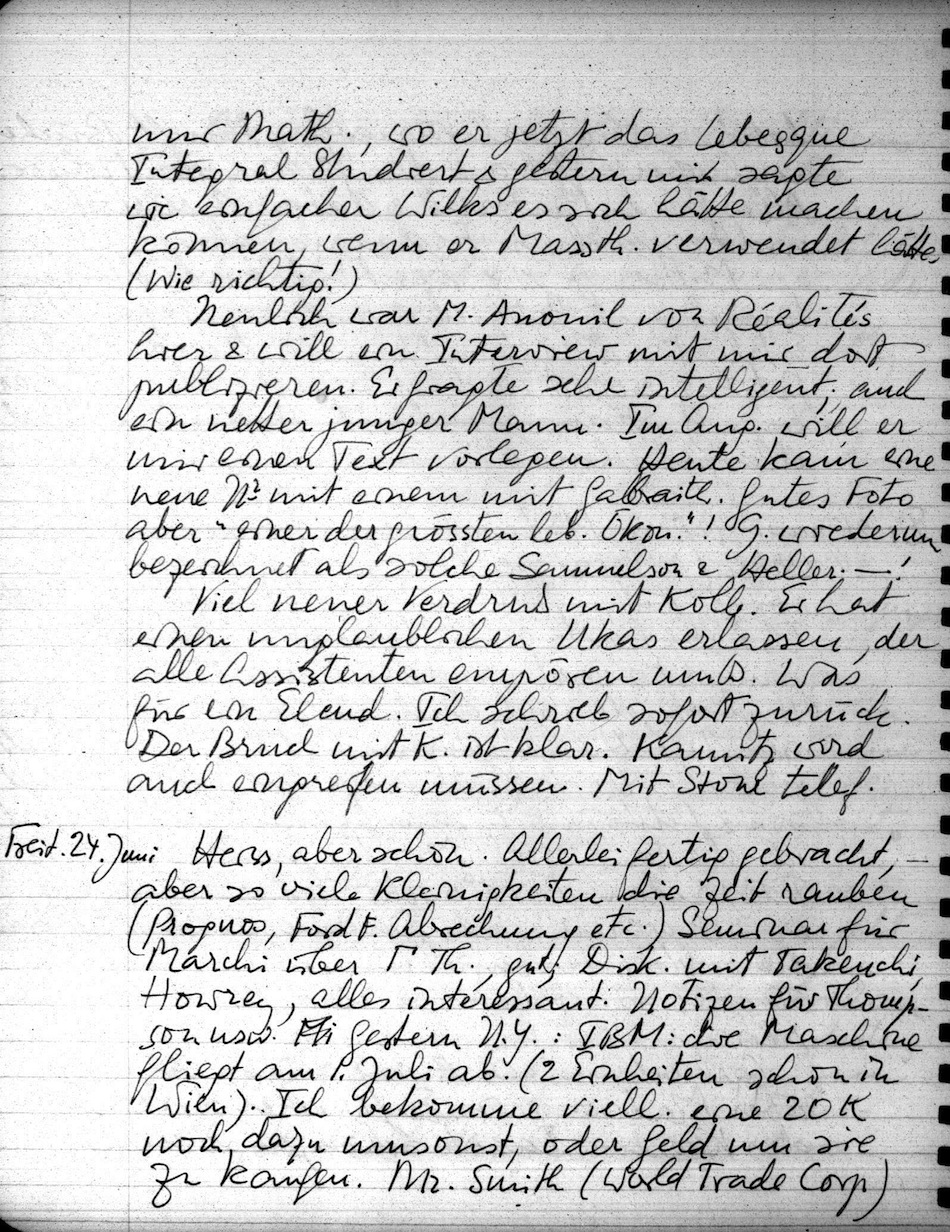 nur Math., wo er jetzt das Lebesgue
Integral studiert & gestern mir sagte
wie einfacher Wilks es sich hätte machen
können, wenn er Massth. verwendet hätte,
(Wie richtig!)
Neulich war M. Anouil von Réalités
hier & will ein Interview mit mir dort
publizieren. Er fragte sehr intelligent; auch
ein netter junger Mann. Im Aug. will er
mir einen Text vorlegen. Heute kam eine
neue No mit einem mit Galbraith. Gutes Foto
aber "einer der grössten leb. Ökon."! G. wiederum
bezeichnet als solche Samuelson & Heller. —!
Viel neuer Verdruss mit Kolb. Er hat
einen unglaublichen Ukas erlassen, der
alle Assistenten empören muss. Was
für ein Elend. Ich schrieb sofort zurück.
Der Bruch mit K. ist klar. Kamitz wird
auch eingreifen müssen. Mit Stone telef.
Freit. 24. Juni Heiss, aber schön. Allerlei fertig gebracht, —
aber so viele Kleinigkeiten die Zeit rauben
(Prognos, Ford F. Abrechnung etc.) Seminar für
Marchi über Γ Th., gute Disk. mit Takeuchi,
Howrey, alles interessant. Notizen für Thomp-
son usw. gestern N.Y.: IBM: die Maschine
fliegt am 1. Juli ab. (2 Einheiten schon in
Wien). Ich bekomme viell. eine 20K
noch dazu umsonst, oder Geld um sie
zu kaufen. Mr. Smith (World Trade Corp)